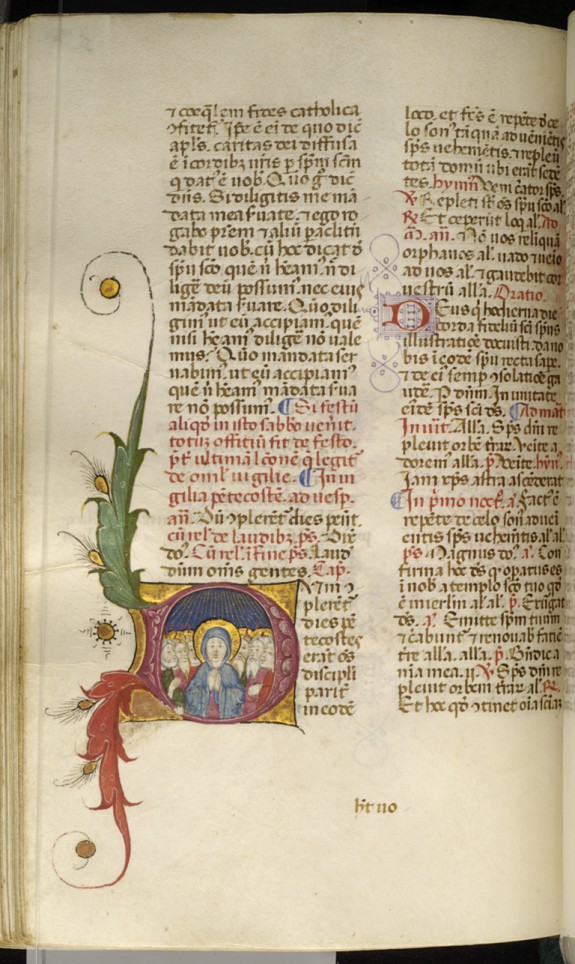 ⁊ coeq̃lem fides catholica
ꝯfitet᷑. ip̃e ẽ ei de quo dic̃
ap̃ls. caritas dei diffusa
ẽ i cordibꝫ ur̃is ꝑ sp̃m sc̃m
q dat᷑ ẽ uob̃. Q̃uo g̃ dic̃
dñs. Si diligitis me mã
data mea ẜuate. ⁊ ego ro
gabo pr̃em ⁊ aliũ paͣclitũ
dabit uob̃. cũ hoc dicat đ
sp̃u sc̃o. quẽ ñ hẽam᷑. ñ di
lige᷑ deũ possum᷑. nec eius
mãdata ẜuare. Q̃uo dili
gim᷑ ut eũ accipiam᷑. quẽ
nisi hẽam᷑ diligẽ nõ uale
mus. Q̃uo mandata ser
uabim᷑. ut eũ accipiam᷑
quẽ ñ hẽam᷑ mãdata ẜua
re nõ possum᷑. Si festũ
aliqđ in isto sabbo uen̾it.
totũ offitiũ fit de festo.
ꝑ̃t ultimã lc̃onẽ q̃ legit᷑
de om̃l uigilie. In ui
gilia pẽtecostẽ. ad uesp̃.
añ. Dũ ꝯplerẽt᷑ dies pẽt.
cũ rel̃ de laudibꝫ. p̃s. Dix̃
do᷑. Cũ rel̃. i fine p̃s. Laud᷑
dñm om̃s gentes. Cap̃.
Dum ꝯ
plerẽt᷑
dies pẽ
tecostes
erãt õs
discipli
parit᷑
in eodẽ
hñt uo
loco. et fc̃s ẽ repẽte d̾ ce
lo son᷑ tãquã aduẽniẽtis
sp̃s uehemẽtis. ⁊ repleu᷑
totã domũ ubi erãt sedẽ
tes. hymñ. Veni c̾ator sp̃s.
℣. Repleti sũt õs sp̃u sc̃o al̃.
℟. Et ceperũt loq̃ al̃. Ad
m̃. añ. Nõ uos reliquã
orphanos al̃. uado ⁊ ueio
ad uos al̃. ⁊ gaudebit cor
uestrũ all̃a. Oratio.
Deus q̃ hodierna die
corda fideliũ sc̃i sp̃us
illustratiõe docuisti. da no
bis i eodẽ sp̃u recta sape᷑.
⁊ de ei᷑ semp̃ ꝯsolatiõe ga
udẽ. P dñm. In unitate
eiđẽ sp̃s sc̃i đs. Ad mat̃
Inuit̃. All̃a. Sp̃s dñi re
pleuit orbẽ tr̃ar̃. Veite a
dorem᷑ all̃a. p̃. Veite. hyñ.
Iam xp̃s astra ascẽderat
In p̾mo noct᷑. a᷑. Fact᷑ ẽ
repẽte de celo son᷑ adueĩ
entis sp̃s uehemẽtis. al̃. al̃.
p̃s. Magnus do᷑. a᷑. Con
firma hoc đs q̃ opatus es
i nob̃. a templo sc̃o tuo qđ
ẽ i ier̃lm al̃. al̃. p̃. Exurgat
đs. a᷑. Emitte sp̃m tuum
⁊ c̾abunt᷑ ⁊ renouab̾ faciẽ
tr̃e all̃a. all̃a. p̃. Bñdic a
nĩa mea. ii. ℣. Sp̃s dñi re
pleuit orbem tr̃ar̃ al̃. ℟.
Et hoc qđ ꝯtinet oĩa sciaz̃